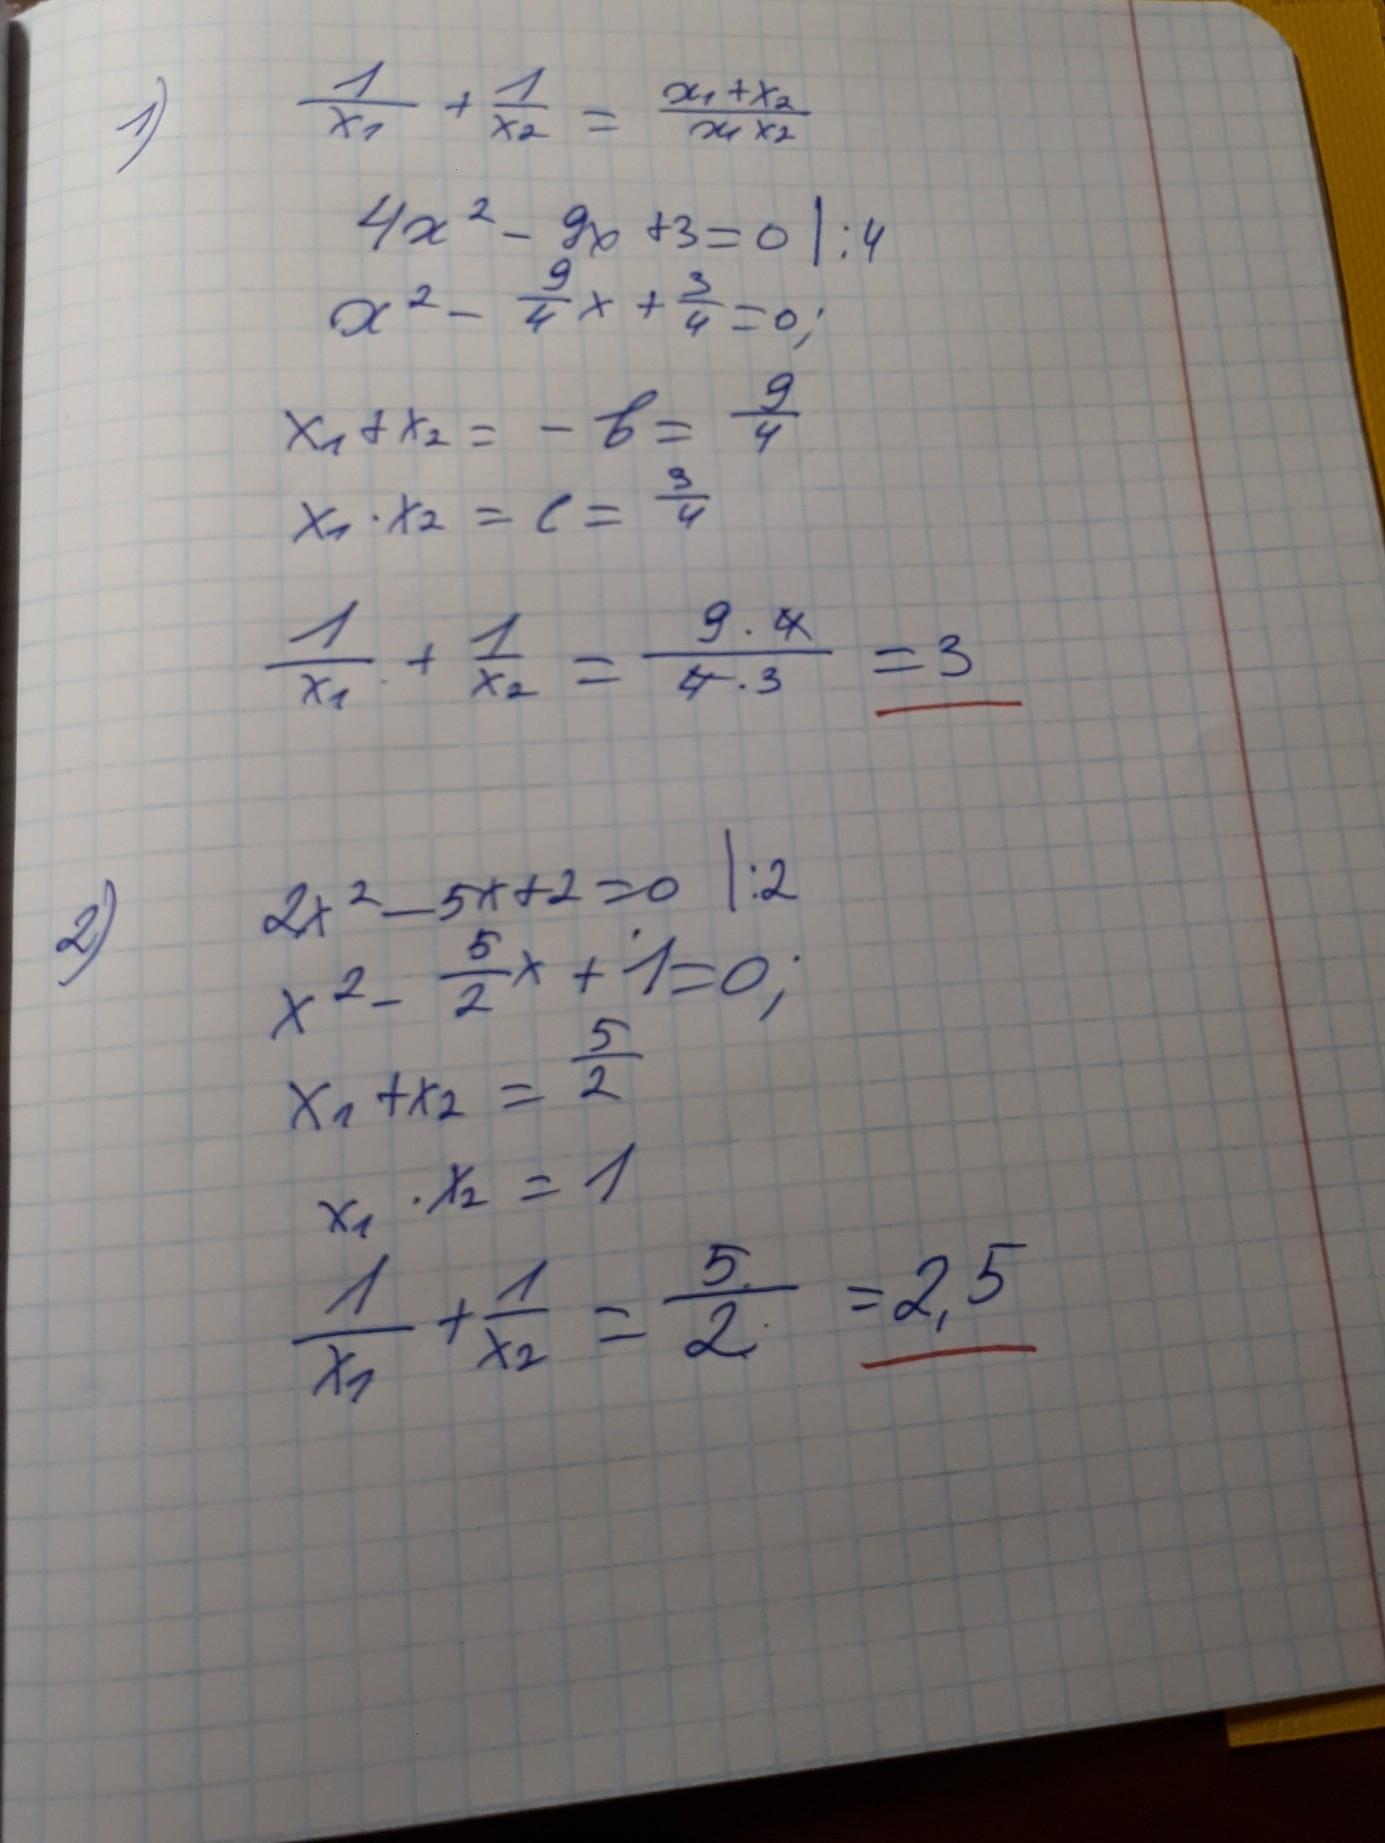 1) 1/x₁ + 1/x₂ = x₁+x₂/x₁x₂
4x² - 9x +3=0 |:4
x² - 9/4 x + 3/4 =0;
x₁+x₂ = - b = 9/4
x₁·x₂ = c = 3/4
1/x₁ + 1/x₂ = 9·4/4·3 =3
2) 2x²-5x+2=0 |:2
x² - 5/2 x + 1=0;
x₁+x₂ = 5/2
x₁·x₂ = 1
1/x₁ + 1/x₂ = 5/2 =2,5